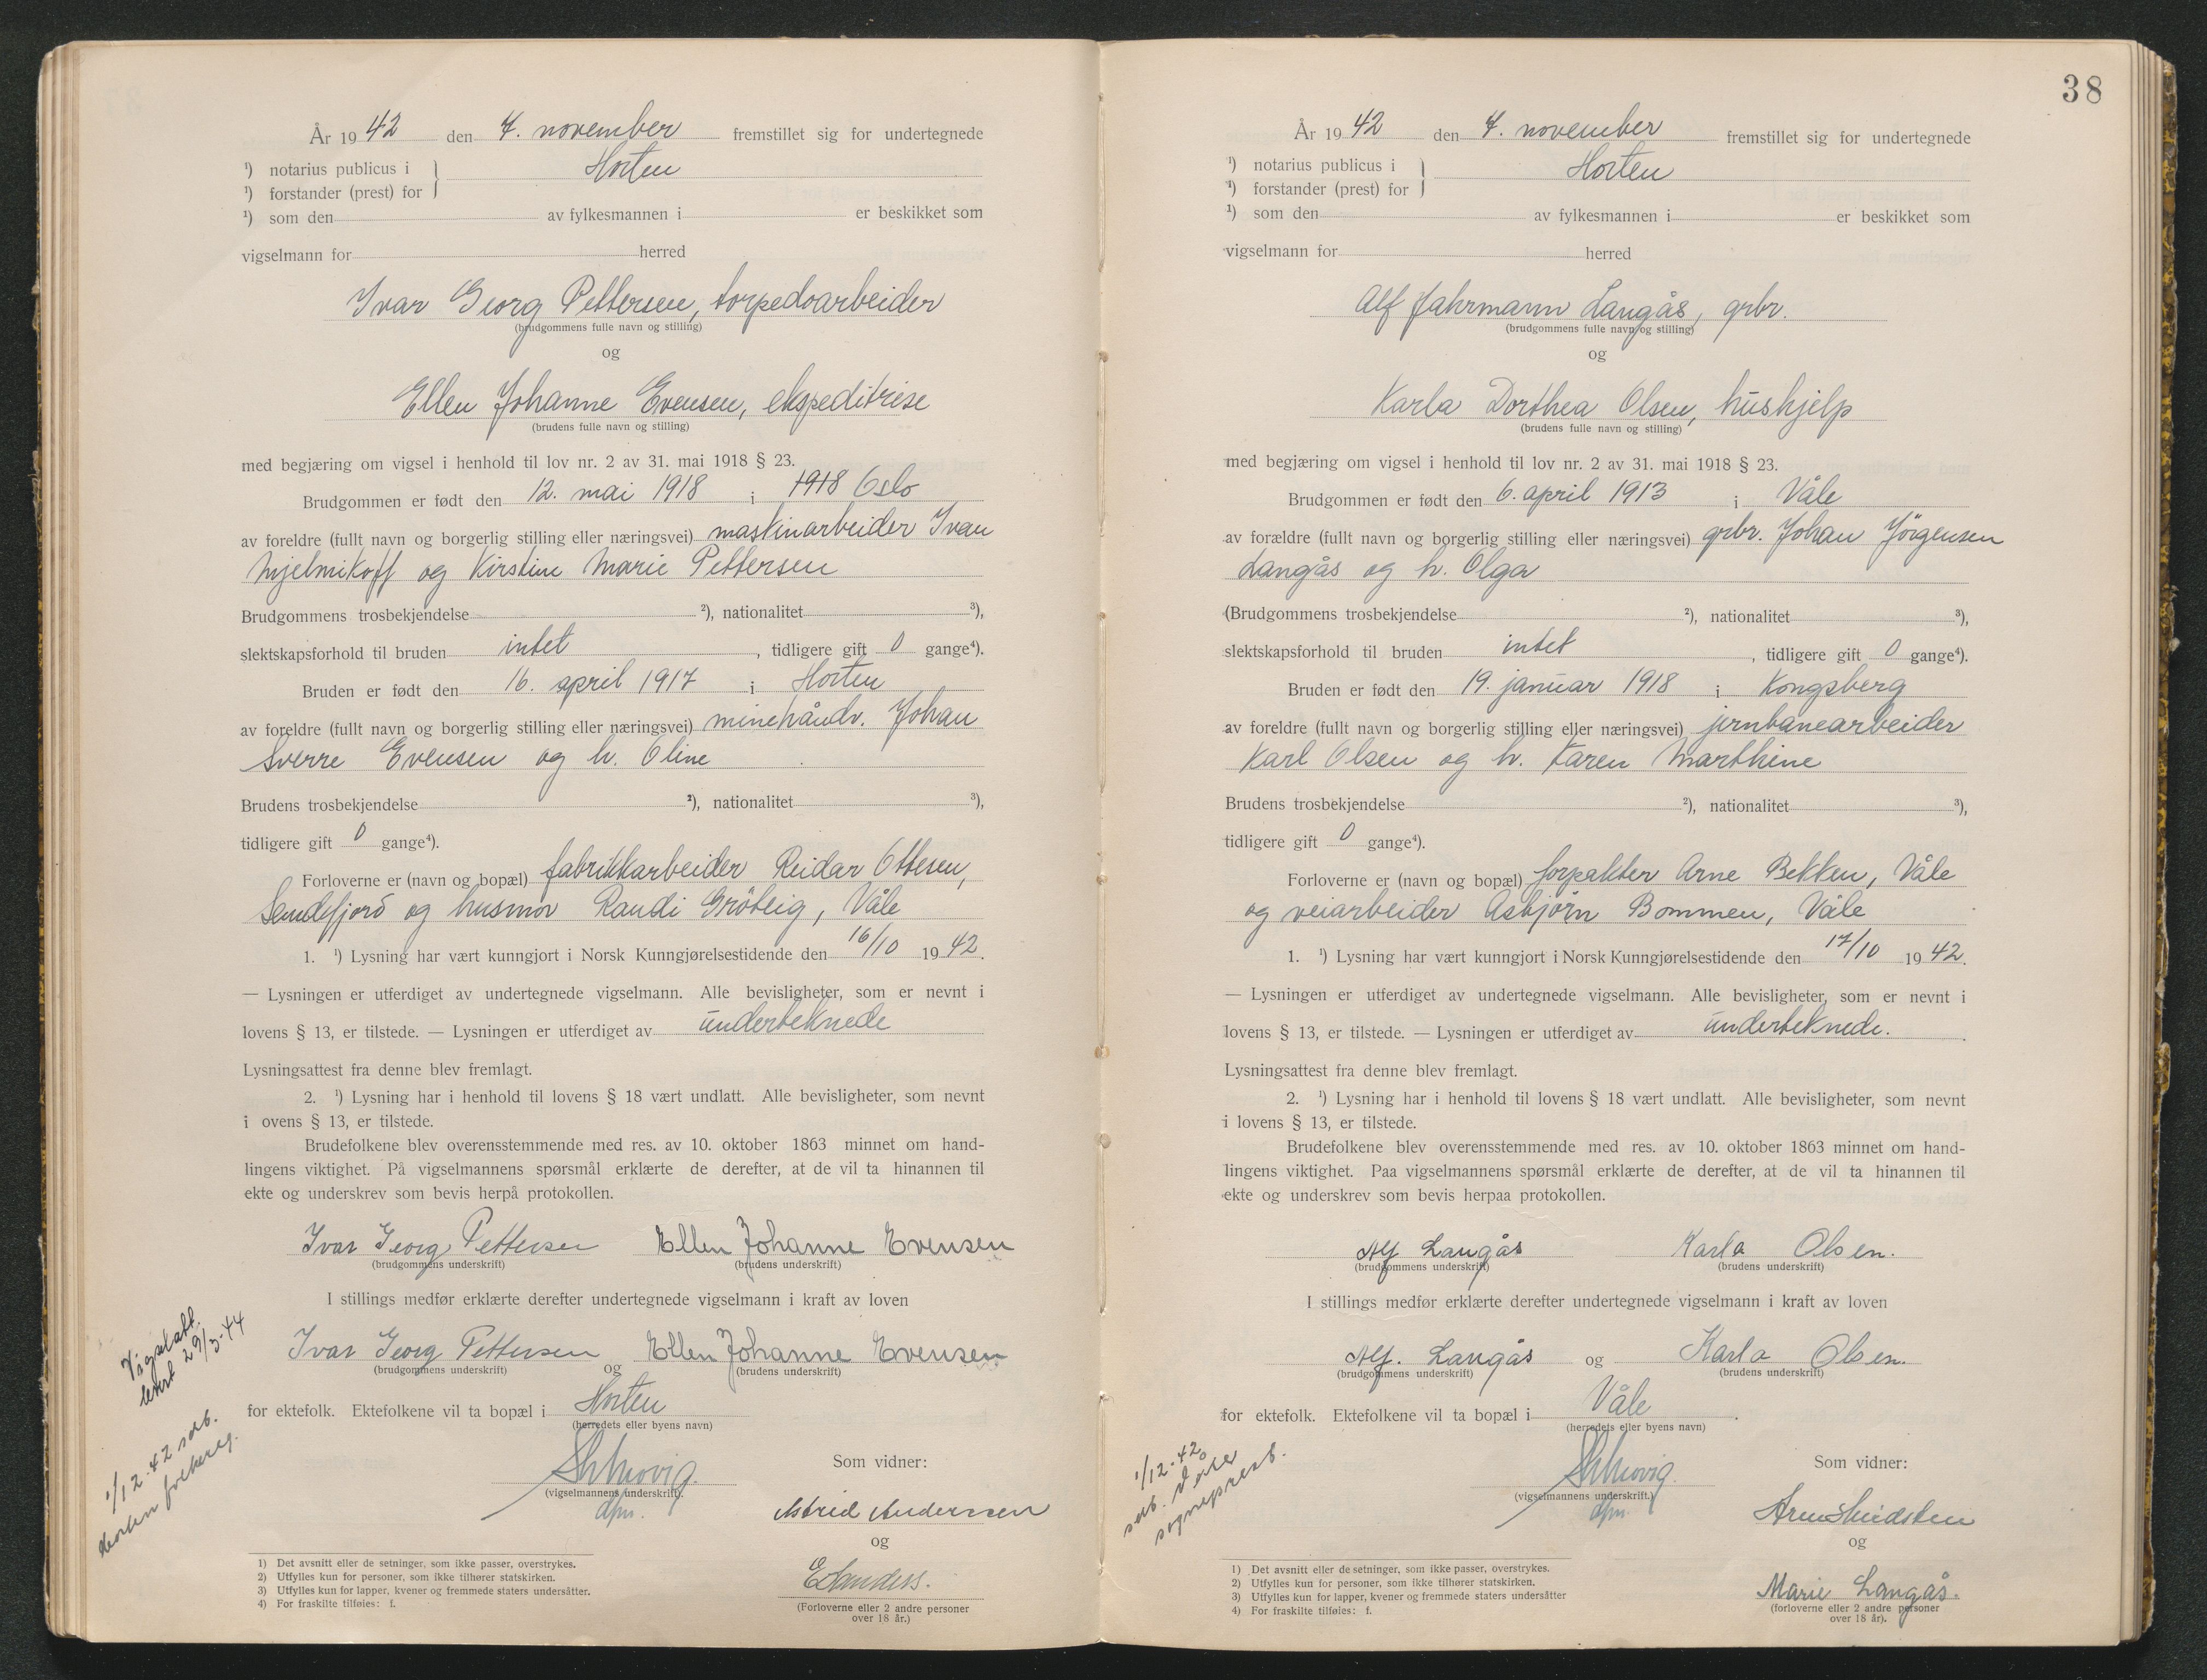 År 1942 den 7. november fremstillet sig for undertegnede
¹) notarius publicus i } Horten
¹) forstander (prest) for
¹) som den av fylkesmannen i er beskikket som
vigselmann for herred
Ivar Georg Pettersen, torpedoarbeider
(brudgommens fulle navn og stilling)
og
Ellen Johanne Evensen, ekspeditrise
(brudens fulle navn og stilling)
med begjæring om vigsel i henhold til lov nr. 2 av 31. mai 1918 § 23.
Brudgommen er født den 12. mai 1918 i 1918 Oslo
av foreldre (fullt navn og borgerlig stilling eller næringsvei) maskinarbeider Ivan
Mjelnikoff og Kirstine Marie Pettersen
Brudgommens trosbekjendelse ²), nationalitet ³),
slektskapsforhold til bruden intet , tidligere gift 0 gange⁴).
Bruden er født den 16. april 1917 i Horten
av foreldre (fullt navn og borgerlig stilling eller næringsvei) minehåndv. Johan
Sverre Evensen og h. Oline
Brudens trosbekjendelse ²), nationalitet ³),
tidligere gift 0 gange⁴).
Forloverne er (navn og bopæl) fabrikkarbeider Reidar Ottesen,
Sandefjord og husmor Randi Gröteig, Våle
1. ¹) Lysning har vært kunngjort i Norsk Kunngjørelsestidende den 16/10 1942.
— Lysningen er utferdiget av undertegnede vigselmann. Alle bevisligheter, som er nevnt i
lovens § 13, er tilstede. — Lysningen er utferdiget av underteknede
Lysningsattest fra denne blev fremlagt.
2. ¹) Lysning har i henhold til lovens § 18 vært undlatt. Alle bevisligheter, som nevnt
i ovens § 13, er tilstede.
Brudefolkene blev overensstemmende med res. av 10. oktober 1863 minnet om hand-
lingens viktighet. På vigselmannens spørsmål erklærte de derefter, at de vil ta hinannen til
ekte og underskrev som bevis herpå protokollen.
Ivar Georg Pettersen Ellen Johanne Evensen
(brudgommens underskrift) (brudens underskrift)
I stillings medfør erklærte derefter undertegnede vigselmann i kraft av loven
Ivar Georg Pettersen og Ellen Johanne Evensen
(brudgommens underskrift) (brudens underskrift)
for ektefolk. Ektefolkene vil ta bopæl i Horten
(herredets eller byens navn)
Som vidner:
(vigselmannens underskrift).
dfm.
Astrid Anderssen
og
(Forloverne eller 2 andre personer
over 18 år.)
Vigselatt.
29/3-44
1/12-42
Horten
1) Det avsnitt eller de setninger, som ikke passer, overstrykes.
2) Utfylles kun for personer, som ikke tilhører statskirken.
3) Utfylles kun for lapper, kvener og fremmede staters undersåtter.
4) For fraskilte tilføies: f.
38
År 1942 den 7. november fremstillet sig for undertegnede
¹) notarius publicus i } Horten
¹) forstander (prest) for
¹) som den av fylkesmannen i er beskikket som
vigselmann for herred
Alf Fahrmann Langås, grbr.
(brudgommens fulle navn og stilling)
og
Karla Dorthea Olsen, hushjelp
(brudens fulle navn og stilling)
med begjæring om vigsel i henhold til lov nr. 2 av 31. mai 1918 § 23.
Brudgommen er født den 6. april 1913 i Våle
av forældre (fullt navn og borgerlig stilling eller næringsvei) grbr. Johan Jörgensen
Langås og h. Olga
(Brudgommens trosbekjendelse ²), nationalitet ³),
slektskapsforhold til bruden intet , tidligere gift 0 gange⁴).
Bruden er født den 19. januar 1918 i Kongsberg
av foreldre (fullt navn og borgerlig stilling eller næringsvei) jernbanearbeider
Karl Olsen og h. Karen Marthine
Brudens trosbekjendelse ²), nationalitet ³),
tidligere gift 0 gange⁴).
Forloverne er (navn og bopæl) forpakter Arne Bekken, Våle
og veiarbeider Asbjörn Bommen, Våle
1. ¹) Lysning har vært kunngjort i Norsk Kunngjørelsestidende den 17/10 1942.
— Lysningen er utferdiget av undertegnede vigselmann. Alle bevisligheter, som er nevnt i
lovens § 13, er tilstede. — Lysningen er utferdiget av underteknede.
Lysningsattest fra denne blev fremlagt.
2. ¹) Lysning har i henhold til lovens § 18 vært undlatt. Alle bevisligheter, som nevnt
i lovens § 13, er tilstede.
Brudefolkene blev overensstemmende med res. av 10. oktober 1863 minnet om hand-
lingens viktighet. Paa vigselmannens spørsmål erklærte de derefter, at de vil ta hinannen til
ekte og underskrev som bevis herpaa protokollen.
Alf Langås Karla Olsen.
(brudgommens underskrift) (brudens underskrift)
I stillings medfør erklærte derefter undertegnede vigselmann i kraft av loven
Alf. Langås og Karla Olsen.
(brudgommens underskrift) (brudens underskrift)
for ektefolk. Ektefolkene vil ta bopæl i Våle
(herredets eller byens navn)
Som vidner:
(vigselmannens underskrift.)
dfm.
og
Marie Langås.
(forloverne eller 2 andre personer
over 18 år).
1/12-42
sdb. Våle
sogneprest.
1) Det avsnitt eller de setninger, som ikke passer, overstrykes.
2) Utfylles kun for personer, som ikke tilhører statskirken.
3) Utfylles kun for lapper, kvener og fremmede staters undersåtter
4) For fraskilte tilføies: f.